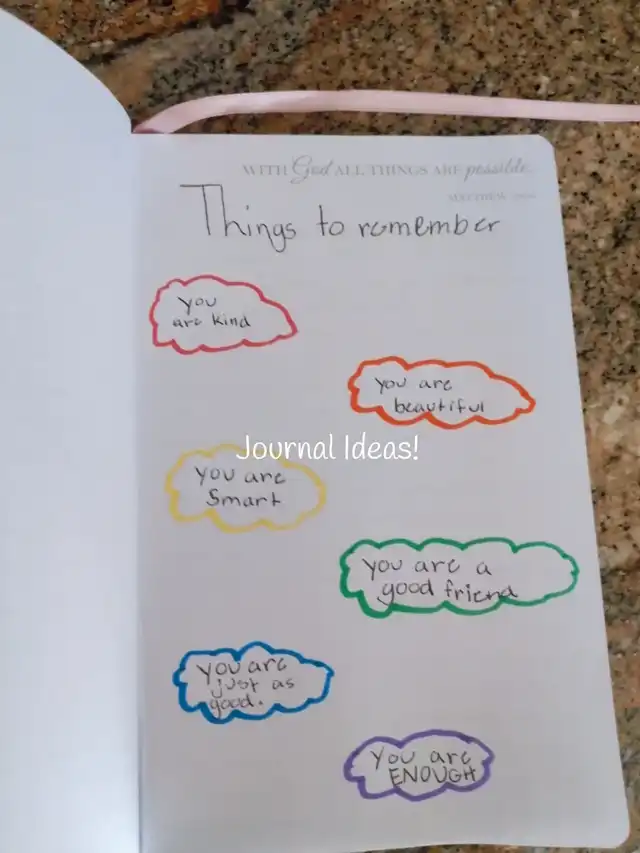 WITH God ALL THINGS ARE possible.
MATTHEW
Things to remember
you
are kind
you are
beautiful
Journal Ideas!
you are
Smart
you are a
good friend
you are
just as
good.
You are
ENOUGH